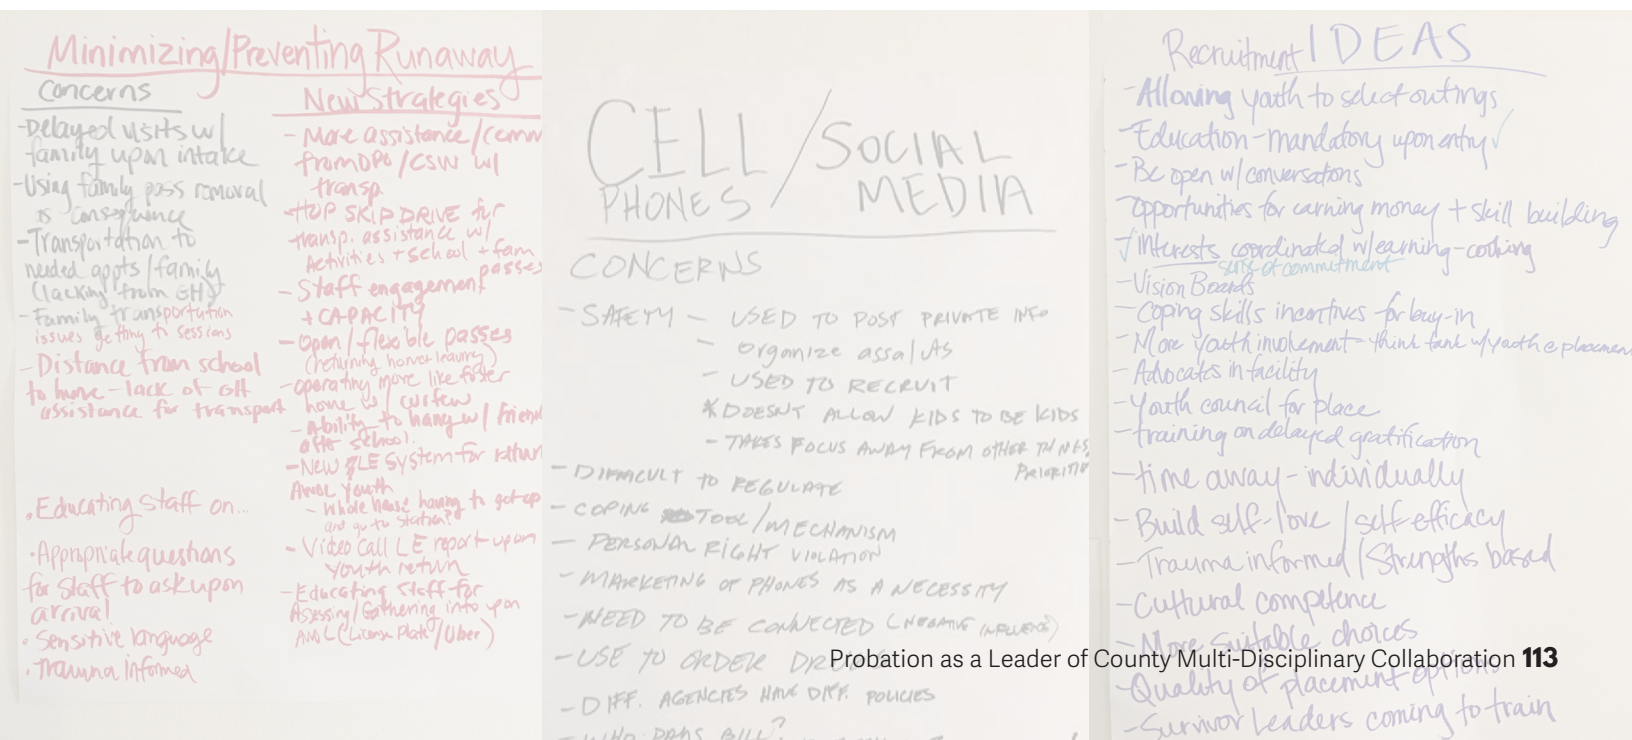 Minimizing/Preventing Runaway
Concerns
-Delayed visits w/
family upon intake
-Using family pass removal
as consequence
-Transportation to
needed appts/family
(lacking from GH)
-Family transportation
issues getting to sessions
-Distance from school
to home-lack of GH
assistance for transport
•Educating staff on...
•Appropriate questions
for staff to ask upon
arrival
•Sensitive language
•Trauma Informed
New Strategies
- More assistance/comm
from DPO/CSW w/
transp.
-HOP SKIP DRIVE for
transp. assistance w/
Activities + school + fam
passes
- Staff engagement
+ CAPACITY
-Open/flexible passes
(returning home leaving)
-operating more like foster
home w/ curfew
-Ability to hang w/ friend
after school.
-New LE System for return
AWOL Youth
- Whole house having to get up
and go to station?
- Video call LE report upon
youth return
-Educating Staff for
Assesing/Gathering info upon
AWOL (License Plate/Uber)
CELL / SOCIAL
PHONES MEDIA
CONCERNS
- SAFETY - USED TO POST PRIVATE INFO
- Organize assaults
- USED TO RECRUIT
*DOESN'T ALLOW KIDS TO BE KIDS
- TAKES FOCUS AWAY FROM OTHER THINGS
- DIFFICULT TO REGULATE
- COPING TOOL/MECHANISM
- PERSONAL RIGHT VIOLATION
- MARKETING OF PHONES AS A NECESSITY
-NEED TO BE CONNECTED (NEGATIVE INFLUENCE)
- USE TO ORDER DRUGS
- DIFF. AGENCIES HAVE DIFF. POLICIES
- WHO PAYS BILL?
Recruitment IDEAS
-Allowing youth to select outings
-Education-mandatory upon entry ✓
-Be open w/conversations
-opportunities for earning money + skill building
✓ Interests coordinated w/earning-cooking
sense of commitment
-Vision Boards
-Coping skills incentives for buy-in
-More youth involvement-think tank w/youth @ placemen
-Advocates in facility
-Youth council for place
-training on delayed gratification
-time away-individually
-Build self-love /self efficacy
-Trauma informed/Strengths based
-Cultural competence
-More suitable choices
-Quality of placement options
-Survivor Leaders coming to train
Probation as a Leader of County Multi-Disciplinary Collaboration 113